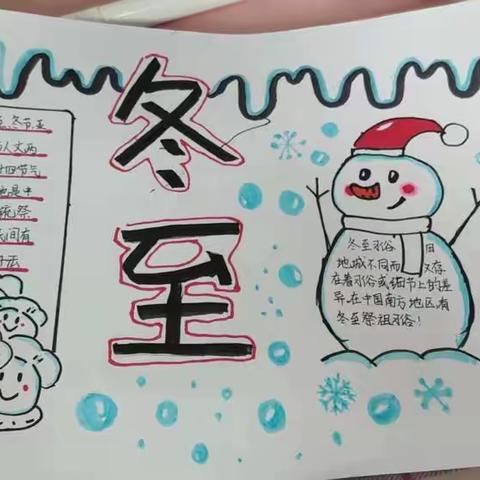 冬至
点、冬节、亚
人文两
十四节气
也是中
统祭
民间有
冬至习俗因
地域不同而又存
在着习俗或细节上的差
异。在中国南方地区,有
冬至祭祖习俗!